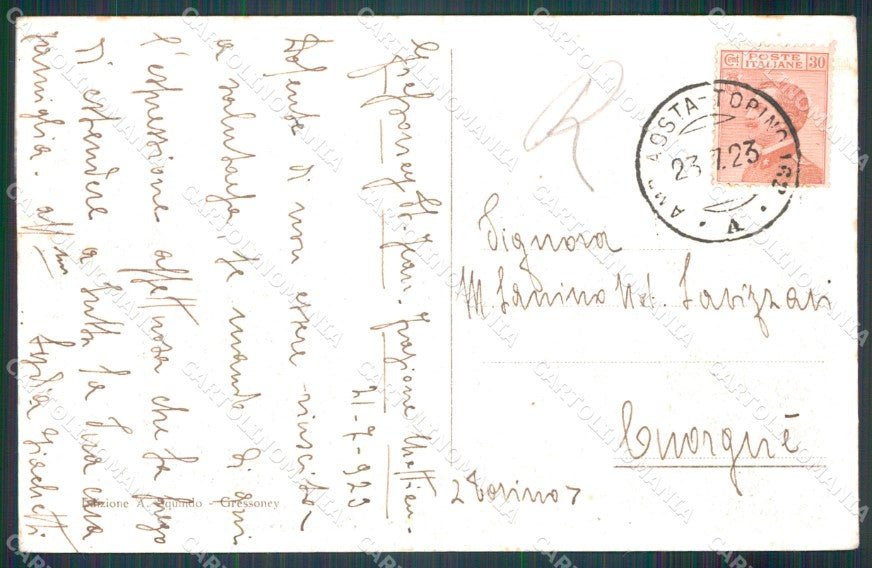 Gressoney St. Jean. frazione
21-7-923
Dolente di non essere riuscita
a salutarla, le mando di qui
l'espressione affettuosa che la prego
di estendere a tutta la sua cara
famiglia. aff.ma
Edizione A. Squindo - Gressoney
POSTE
ITALIANE
Cent. 30
AMB. AOSTA-TORINO
23.7.23
A
R
Signora
M.
Cuorgnè
(Torino)
CARTOLINOMANIA